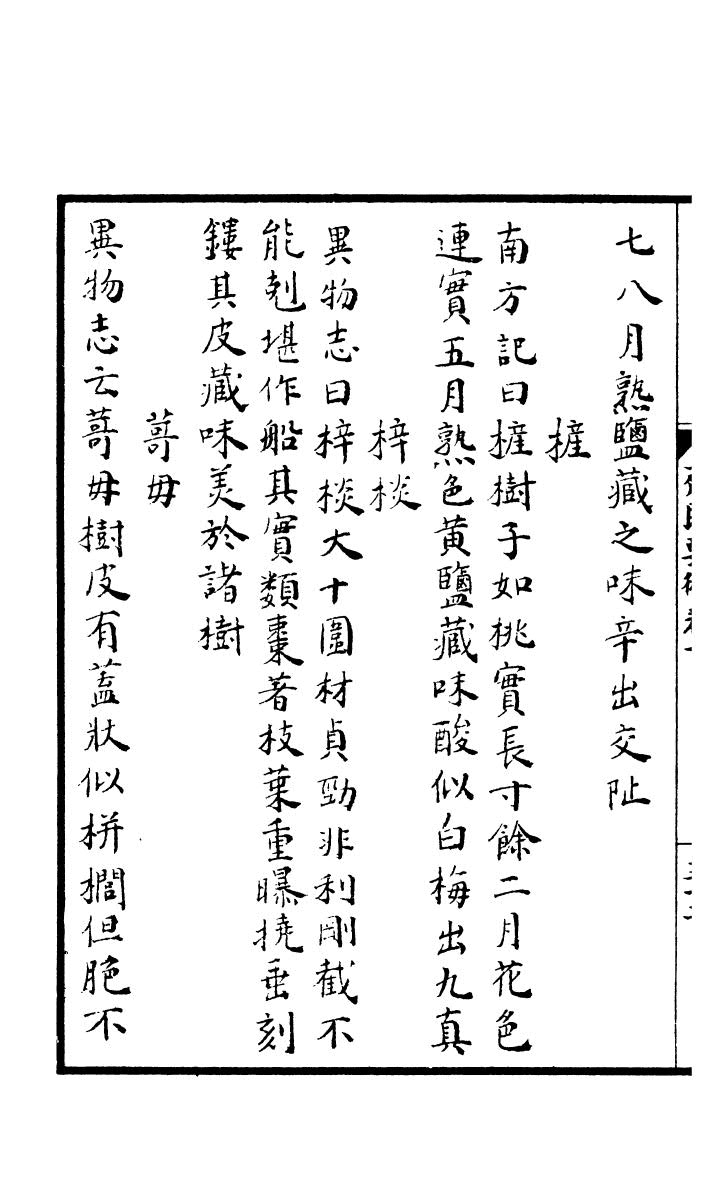 七八月熟鹽藏之味辛出交阯
㰌
南方記曰㰌樹子如桃實長寸餘二月花色
連實五月熟色黄鹽藏味酸似白梅出九真
梓棪
異物志曰梓棪大十圍材貞勁非利剛截不
能剋堪作船其實類棗著枝葉重曝撓垂刻
鏤其皮藏味美於諸樹
蒈母
異物志云蒈母樹皮有葢狀似栟櫚但脃不